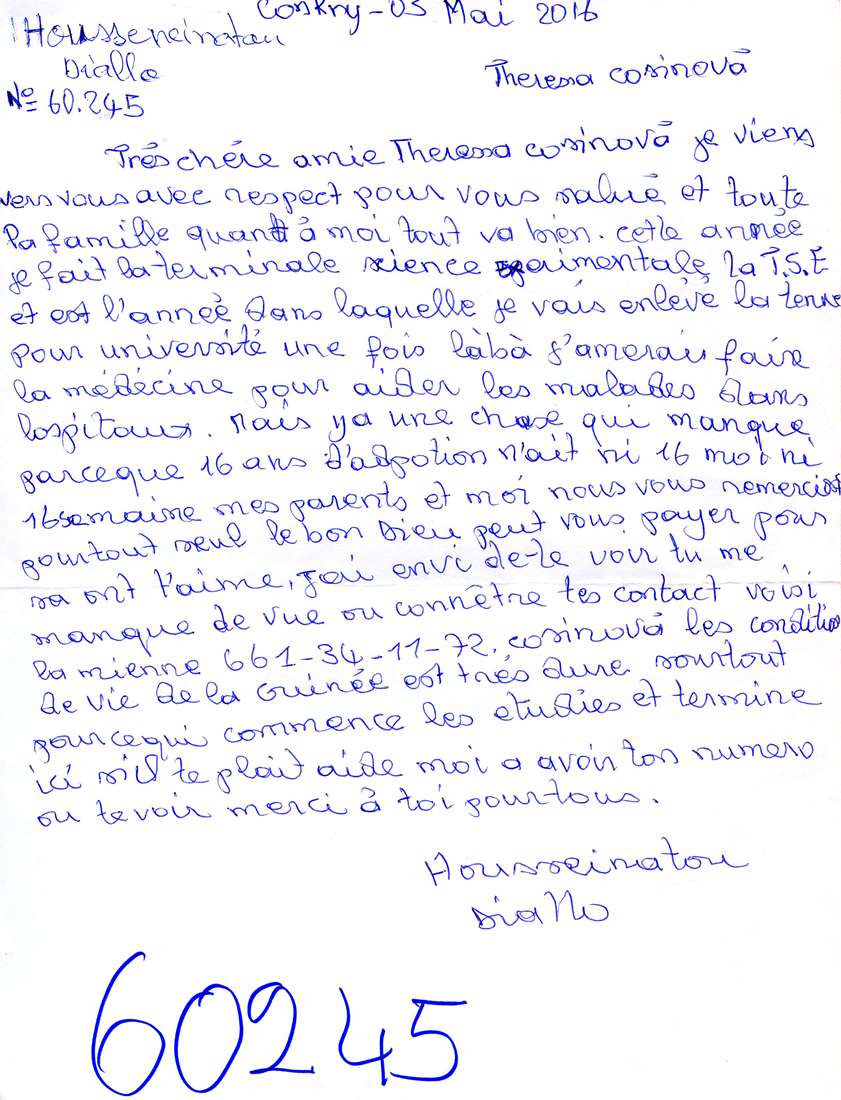 Conkry-05 Mai 2016
Housseneinatou
Diallo
N° 60.245
Theresa cosinovā
Trés chére amie Theressa cosinovā je viens
vers vous avec respect pour vous salué et toute
la famille quant à moi tout va bien. cette année
je fait la terminale science experimentale, la T.S.E
et est l'année dans laquelle je vais enlevé la terre
pour université une fois làbà j'amerais faire
la médécine pour aider les malades dans
lospitaux. Mais ya une chose qui manque
parceque 16 ans d'adpotion n'ait ni 16 moi ni
16 semaine mes parents et moi nous vous remercions
pourtout seul le bon Dieu peut vous payer pour
sa ont t'aime, j'ai envi de-te voir tu me
manque de vue ou connêtre tes contact voisi
la mienne 661-34-11-72. cosinovā les condition
de vie de la Guinée est trés dure sourtout
pourcequi commence les etudies et termine
ici s'il te plait aide moi a avoir ton numero
ou te voir merci à toi pourtous.
Housseinatou
Diallo
60245